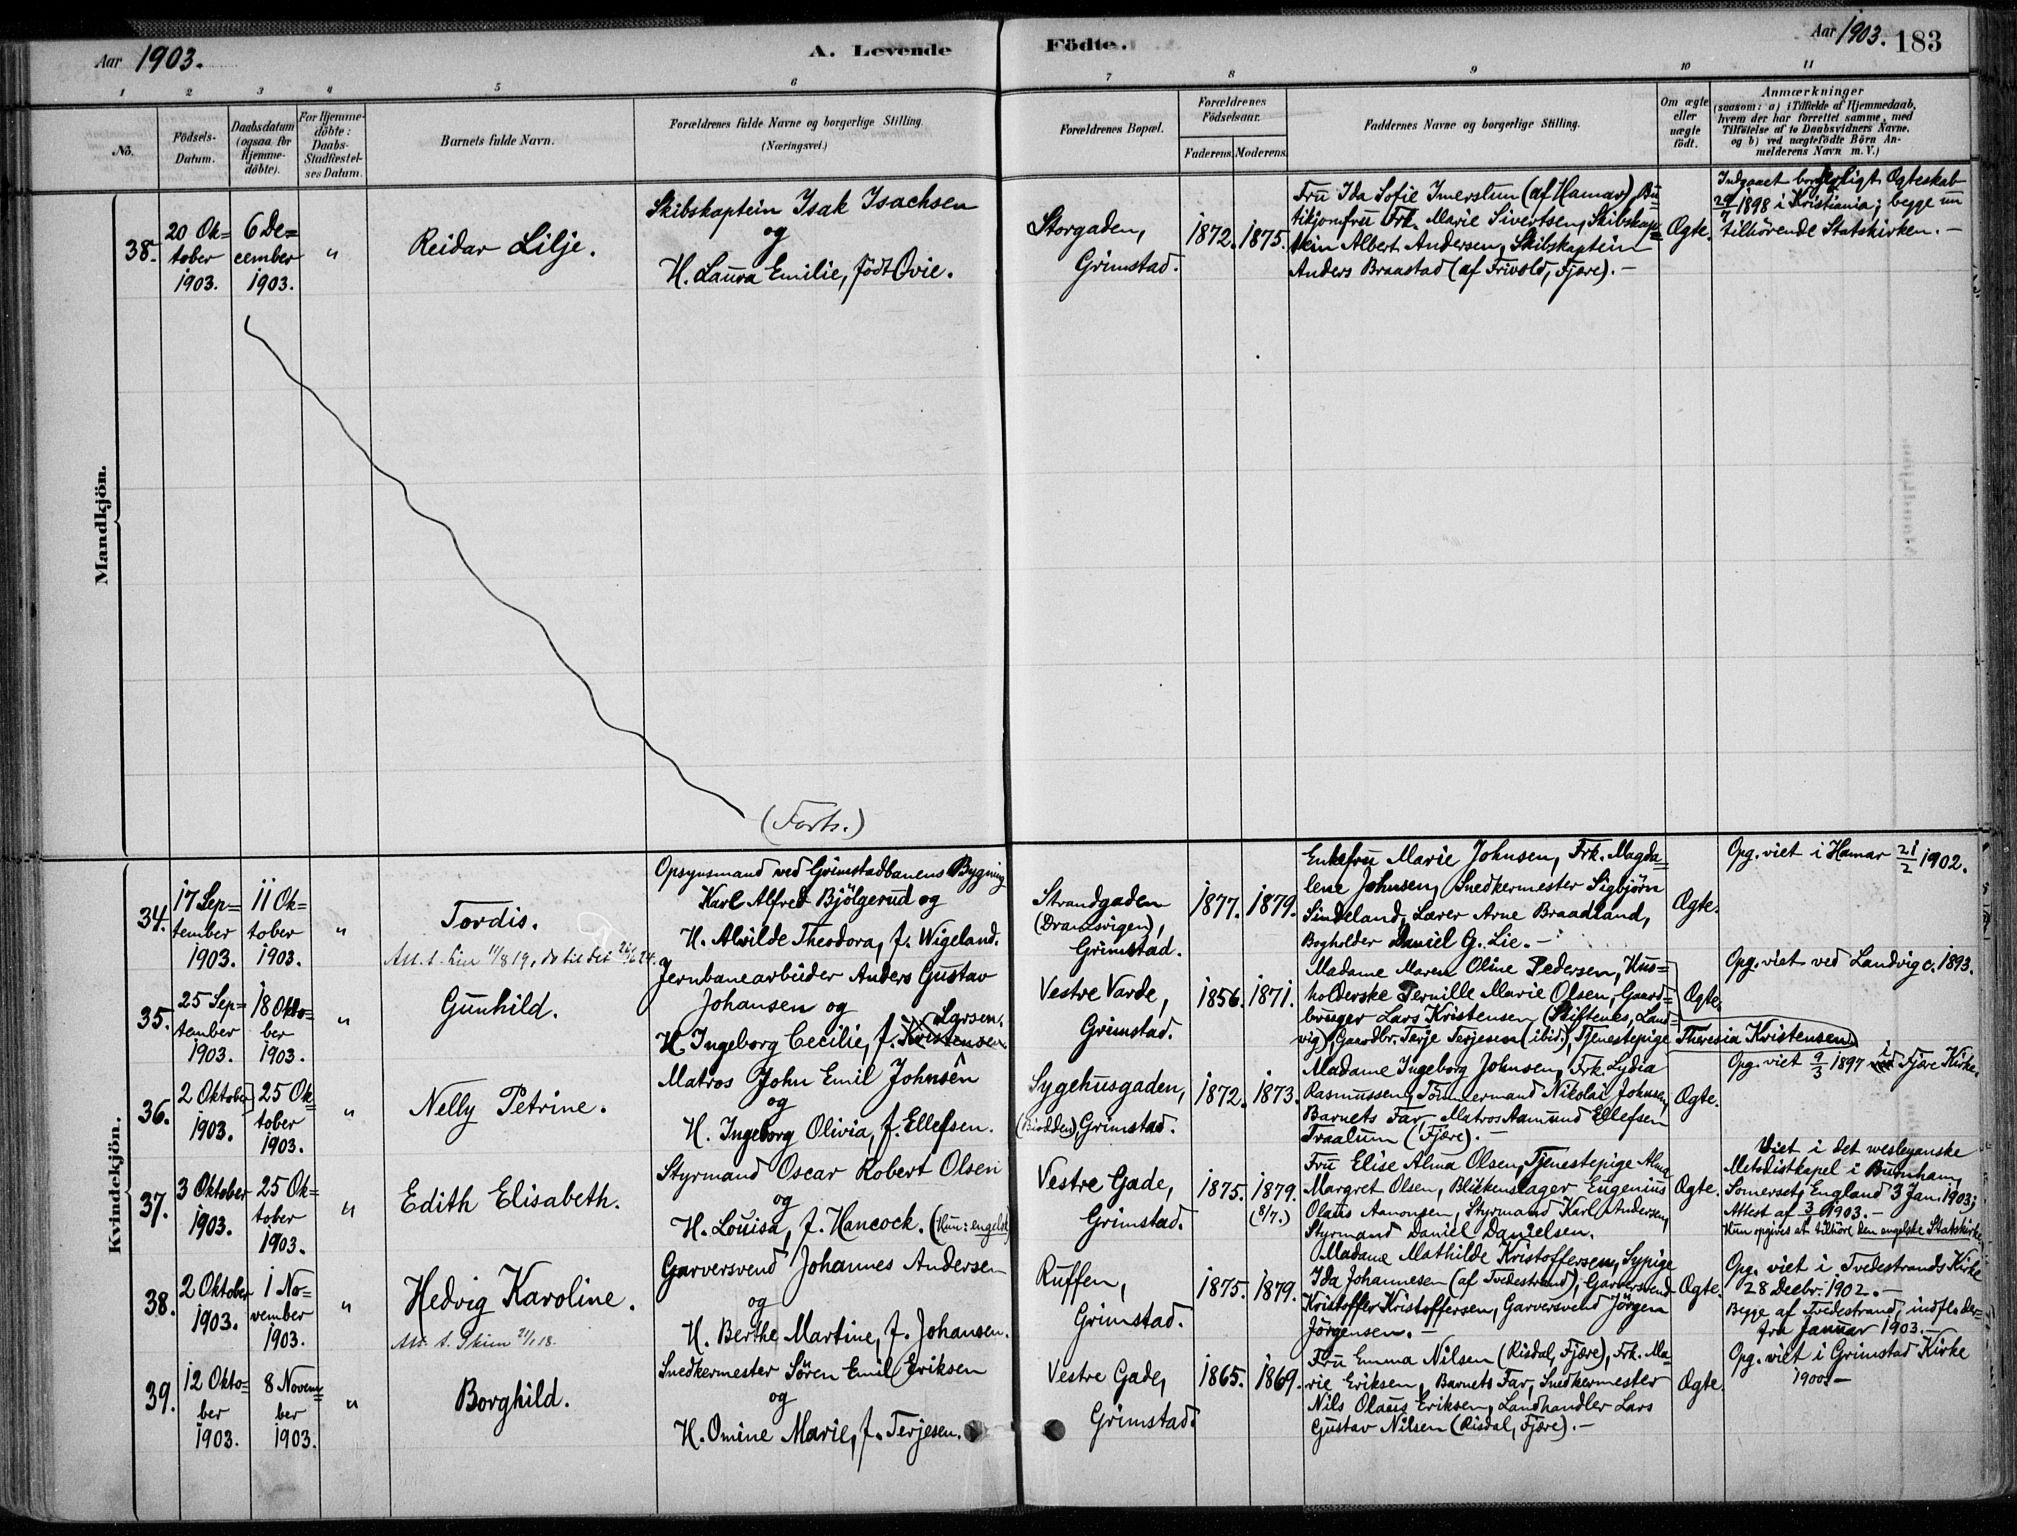 Aar 1903.
A. Levende Födte.
Aar 1903. 183
1 2 3 4 5 6 7 8 9 10 11
No.
Födsels-
Datum.
Daabsdatum
(ogsaa for
Hjemme-
döbte).
For Hjemme-
döbte:
Daabs-
Stadfæstel-
ses Datum.
Barnets fulde Navn.
Forældrenes fulde Navne og borgerlige Stilling.
(Næringsvei.)
Forældrenes Bopæl.
Forældrenes
Födselsaar.
Faderens. Moderens.
Faddernes Navne og borgerlige Stilling.
Om ægte
eller
uægte
født.
Anmærkninger
(saasom: a) i Tilfælde af Hjemmedaab,
hvem der har forrettet samme, med
Tilföielse af to Daabsvidners Navne.
og b) ved uægtefödte Börn An-
melderens Navn m. V.)
Mandkjön.
38.
20 Ok=
tober
1903.
6 De=
cember
1903.
"
Reidar Lilje.
Skibskaptein Isak Isachsen
og
H. Laura Emilie, født Ovie.
Storgaden,
Grimstad.
1872. 1875.
Fru Ida Sofie Imerslun (af Hamar), Bu=
tikjomfru Frk. Marie Sivertsen, Skibskap=
tein Albert Andersen, Skibskaptein
Anders Braastad (af Frivold, Fjære). –
Ægte.
Indgaaet borgerligt Ægteskab
29/7 1898 i Kristiania; begge
tilhörende Statskirken. –
(Forts.)
Kvindekjön.
34.
17 Sep=
tember
1903.
11 Ok=
tober
1903.
"
Tordis.
Att. s. 11/8 19, do til det 26/6 24.
Opsynsmand ved Grimstadbanens Bygning
Karl Alfred Bjölgerud og
H. Alvilde Theodora, f. Wigeland.
Strandgaden
(Dramsvigen),
Grimstad.
1877. 1879.
Enkefru Marie Johnsen, Frk. Magda=
lene Johnsen, Snedkermester Sigbjörn
Sindeland, Lærer Arne Braadland,
Bogholder Daniel G. Lie. –
Ægte.
Opg. viet i Hamar 21/2 1902.
35.
25 Sep=
tember
1903.
18 Okto=
ber
1903.
"
Gunhild.
Jernbanearbeider Anders Gustav
Johansen og
Larsen.
H. Ingeborg Cecilie, f. Kristensen.
Vestre Varde,
Grimstad.
1856. 1871.
Madame Maren Oline Pedersen, Hus=
holderske Pernille Marie Olsen, Gaard=
bruger Lars Kristensen (Skiftenes, Land=
vig), Gaardbr. Tarje Terjesen (ibid.), Tjenestepige Theresia Kristensen.
Ægte.
Opg. viet ved Landvig c. 1893.
36.
2 Oktober
1903.
25 Ok=
tober
1903.
"
Nelly Petrine.
Matros John Emil Johnsen
og
H. Ingeborg Olivia, f. Ellefsen.
Sygehusgaden,
(Biodden), Grimstad.
1872. 1873.
Madame Ingeborg Johnsen, Frk. Lydia
Rasmussen, Tömmermand Nikolai Johnsen,
Barnets Far, Matros Aamund Ellefsen
Traalum (Fjære). –
Ægte.
Opg. viet 9/3 1897 i Fjære Kirke.
37.
3 Oktober
1903.
25 Ok=
tober
1903.
"
Edith Elisabeth.
Styrmand Oscar Robert Olsen
og
H. Louisa, f. Hancock. (Hun: engelsk)
Vestre Gade,
Grimstad.
1875. 1879.
(8/7.)
Fru Elise Alma Olsen, Tjenestepige Alma
Margret Olsen, Blikkenslager Eugenius
Olaus Aanonsen, Styrmand Karl Andersen,
Styrmand Daniel Danielsen.
Ægte.
Viet i det wesleyanske
Metodistkapel i Burnham,
Somerset, England 3 Jan. 1903;
Attest af 3/1 1903. –
Hun opgives at tilhöre den engelske Statskirke.
38.
2 Oktober
1903.
1 No=
vember
1903.
"
Hedvig Karoline.
Att. s. Skien 21/1 18.
Garversvend Johannes Andersen
og
H. Berthe Martine, f. Johansen.
Ruffen,
Grimstad.
1875. 1879.
Madame Mathilde Kristoffersen, Sypige
Ida Johannesen (af Tvedestrand), Garversvend
Kristoffer Kristoffersen, Garversvend Jörgen
Jörgensen. –
Ægte.
Opg. viet i Tvedestrands Kirke
28 Decbr. 1902. –
Begge af Tvedestrand, indfl. der=
fra Januar 1903. –
39.
12 Okto=
ber
1903.
8 Novem=
ber
1903.
"
Borghild.
Snedkermester Sören Emil Eriksen
og
H. Omine Marie, f. Terjesen.
Vestre Gade,
Grimstad.
1865. 1869.
Fru Emma Nilsen (Risdal, Fjære), Frk. Ma=
rie Eriksen, Barnets Far, Snedkermester
Nils Olaus Eriksen, Landhandler Lars
Gustav Nilsen (Risdal, Fjære). –
Ægte.
Opg. viet i Grimstad Kirke
1900. –